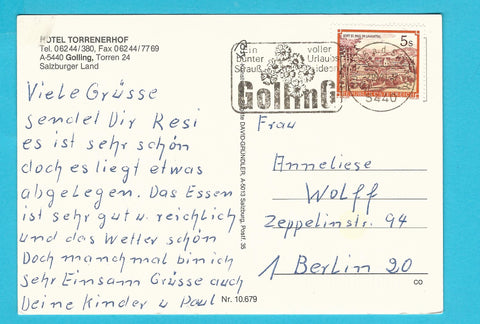 HOTEL TORRENERHOF
Tel. 06244/380, Fax 06244/7769
A-5440 Golling, Torren 24
Salzburger Land
Viele Grüsse
sendet Dir Resi
es ist sehr schön
doch es liegt etwas
abgelegen. Das Essen
ist sehr gut u. reichlich
und das Wetter schön
Doch manchmal bin ich
sehr Einsam Grüsse auch
Deine Kinder u Paul
Nr. 10.679
DAVID-GRÜNDLER, A-5013 Salzburg, Postf. 35
Ein bunter Strauß
voller Urlaubs
Golling
5440
5s
Frau
Anneliese
Wolff
Zeppelinstr. 94
1 Berlin 20
CO